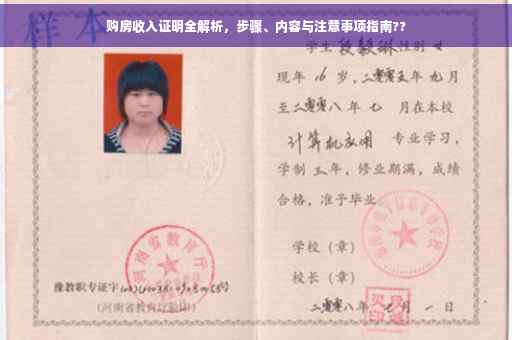 购房收入证明全解析，步骤、内容与注意事项指南??
样本
学生 段毅琳 性别 女
现年 16 岁，二零零五年 九月
至二零零八年 七 月在本校
计算机应用 专业学习，
学制 三年，修业期满，成绩
合格，准予毕业
学校（章）
校长（章）
二零零八年 七月 一日
河南省教育厅
豫教职专证字
(河南省教育厅监印)